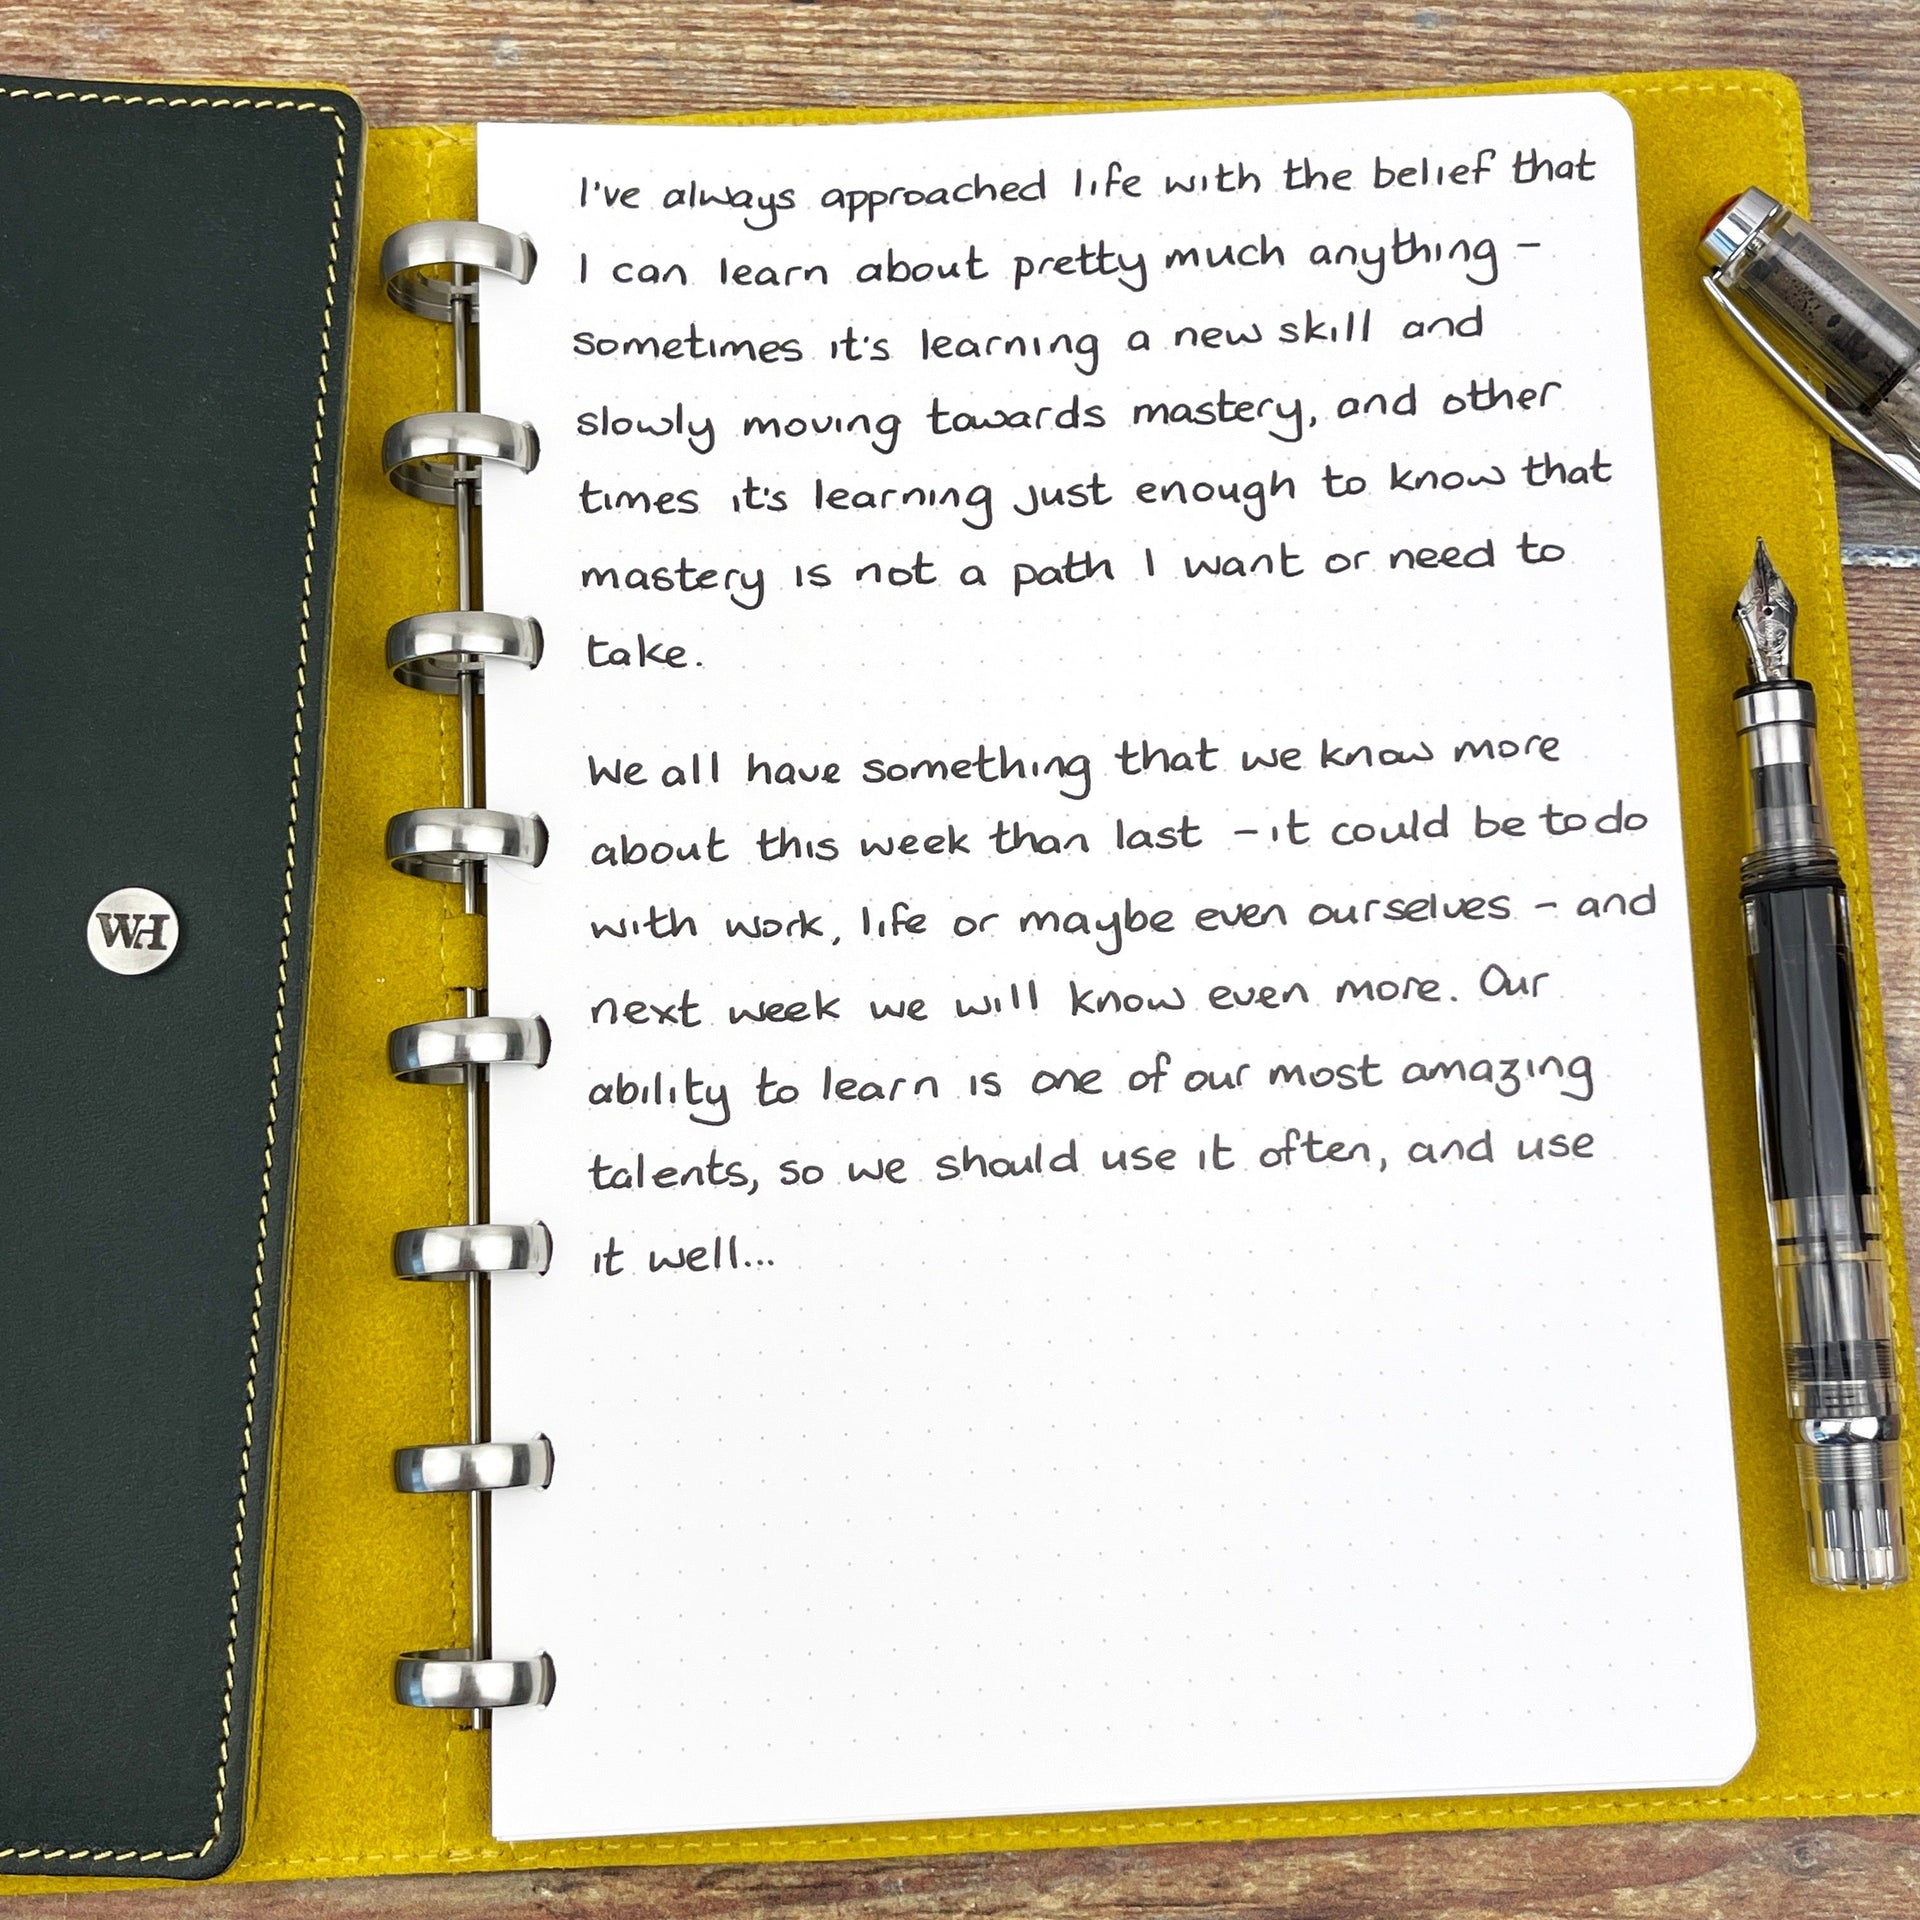 I've always approached life with the belief that
I can learn about pretty much anything -
sometimes it's learning a new skill and
slowly moving towards mastery, and other
times it's learning just enough to know that
mastery is not a path I want or need to
take.
We all have something that we know more
about this week than last - it could be to do
with work, life or maybe even ourselves - and
next week we will know even more. Our
ability to learn is one of our most amazing
talents, so we should use it often, and use
it well...
WH